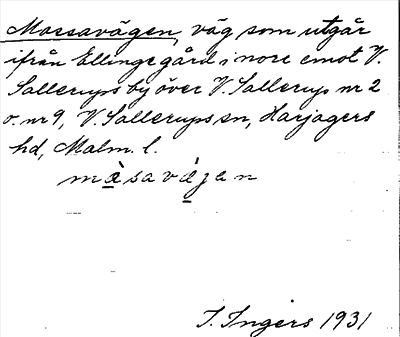 Massavägen, väg som utgår
ifrån Ellinge gård i norr emot V.
Sallerups by över V. Sallerup nr 2
o. nr 9, V. Sallerups sn, Harjagers
hd, Malm. l.
màsavä́gen
I. Ingers 1931